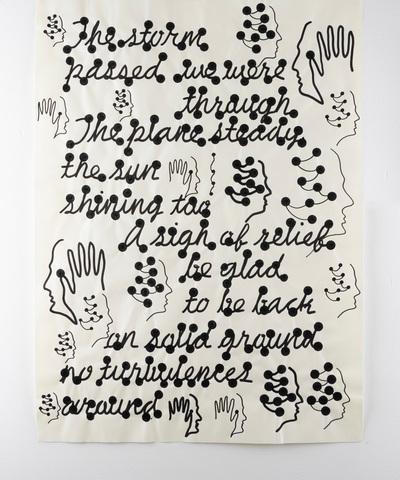 The storm
passed we were
through
The plane steady
the sun
shining too
A sigh of relief
be glad
to be back
on solid ground
no turbulences
around